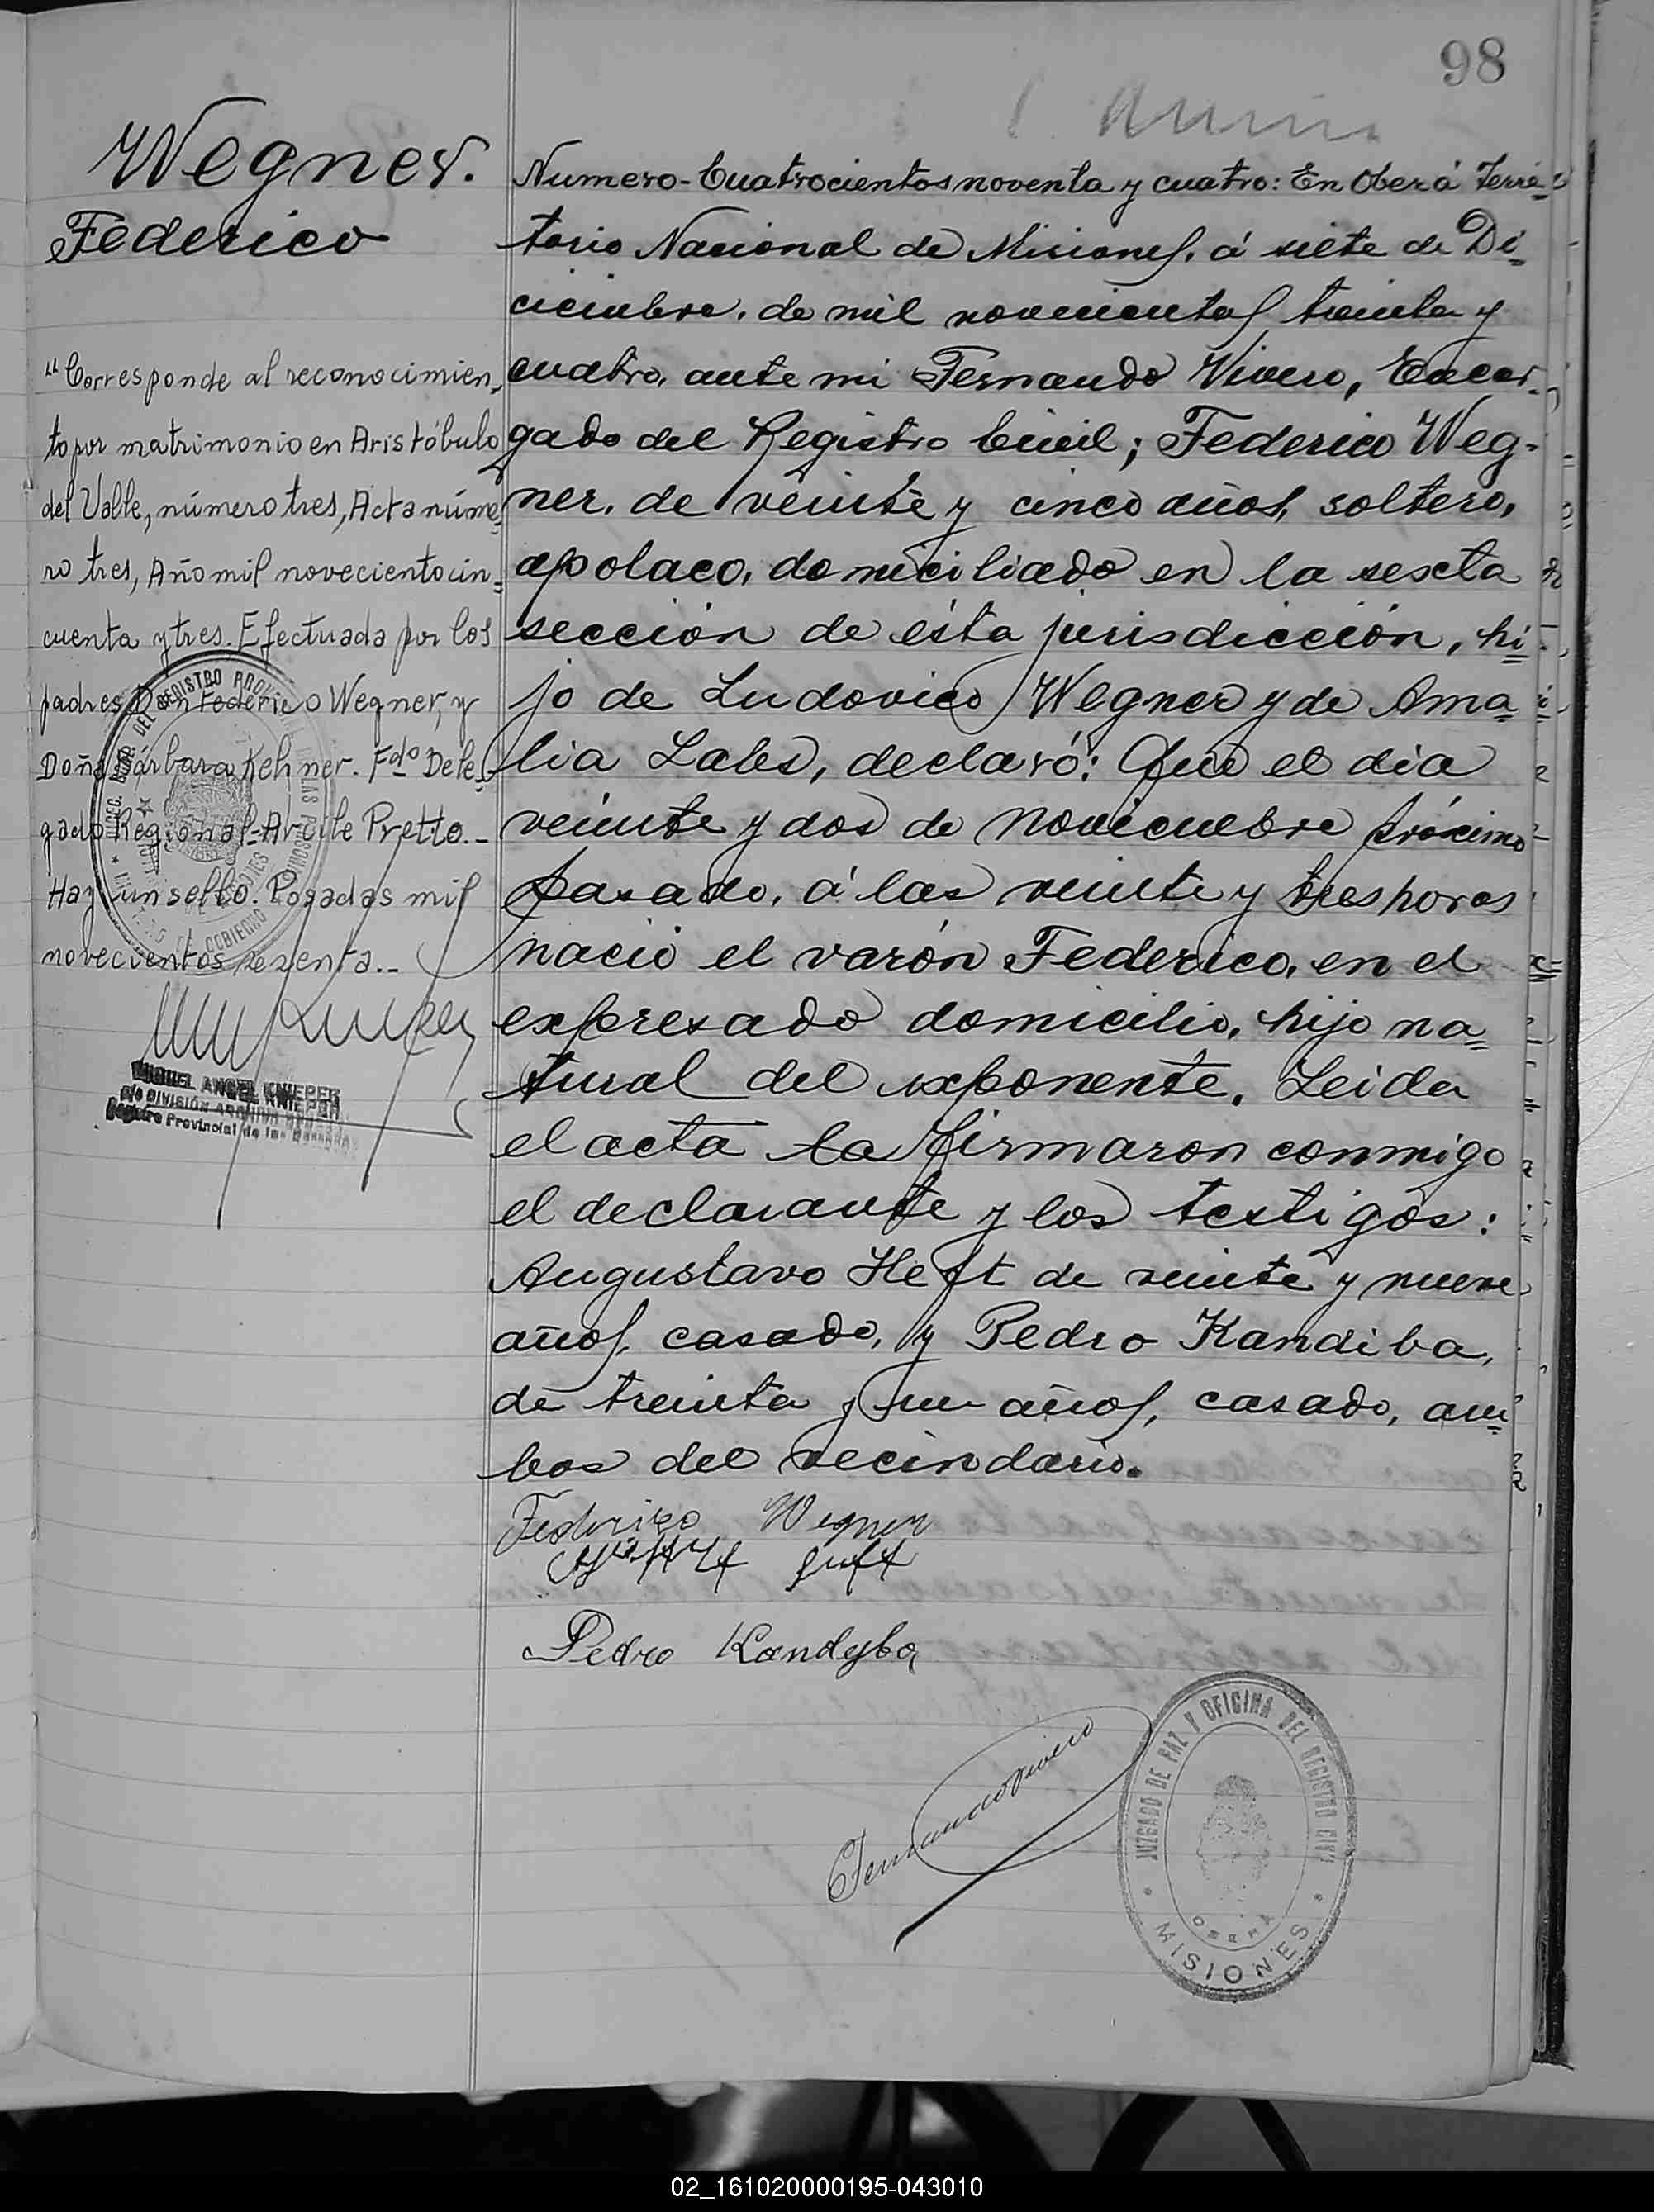 98
Wegner.
Federico
"Corresponde al reconocimien=
to por matrimonio en Aristóbulo
del Valle, número tres, Acta núme=
ro tres, Año mil noveciento cin=
cuenta y tres. Efectuada por los
padres Don Federico Wegner, y
Doña Bárbara Kehner. Fdo Dele=
gado Regional-Arcile Pretto.-
Hay un sello. Posadas mil
novecientos sesenta.-
MIGUEL ANGEL KNIEPER
DIVISIÓN ARCHIVO
Registro Provincial de las Personas
Numero-Cuatrocientos noventa y cuatro: En Oberá Terri=
torio Nacional de Misiones, á siete de Di=
ciembre, de mil novecientos treinta y
cuatro, ante mi Fernando Vivero, Encar=
gado del Registro Civil; Federico Weg-
ner, de veinte y cinco años, soltero,
apolaco, domiciliado en la sexta
sección de ésta jurisdicción, hi=
jo de Ludovico Wegner y de Ama=
lia Labes, declaró: Que el dia
veinte y dos de Noviembre próximo
pasado, á las veinte y tres horas
nació el varón Federico, en el
expresado domicilio, hijo na=
tural del exponente. Leida
el acta la firmaron conmigo
el declarante y los testigos:
Augustavo Heft de veinte y nueve
años, casado, y Pedro Kandiba,
de treinta y un años, casado, am=
bos del vecindario.
Federico Wegner
Pedro Kandyba
Fernando Vivero
JUZGADO DE PAZ Y OFICINA DEL REGISTRO CIVIL
OBERÁ
* MISIONES *
02_161020000195-043010